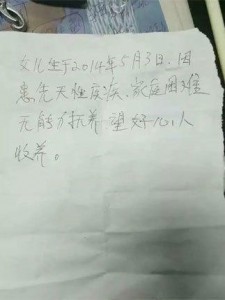 女儿生于2014年5月3日.因
患先天性皮疾、家庭困难
无能力抚养 望好心人
收养。